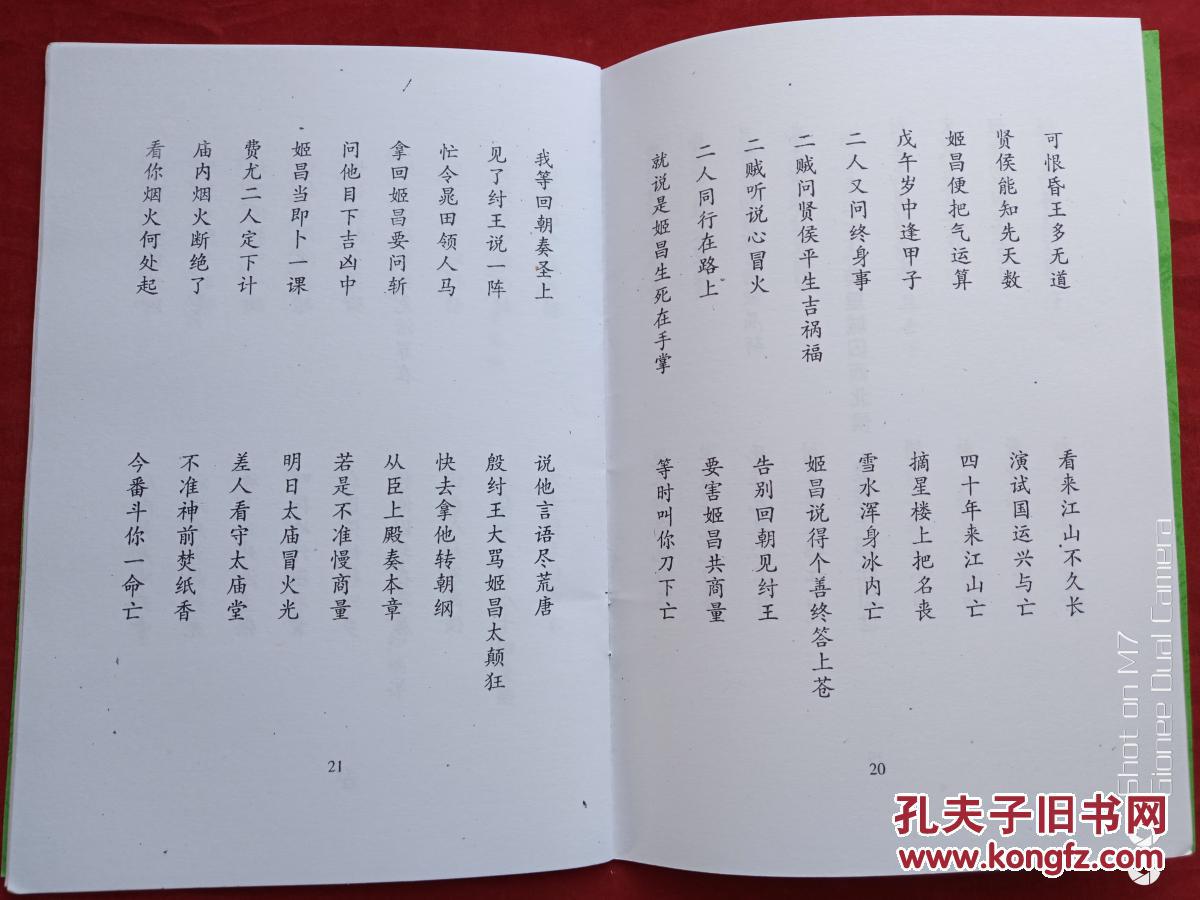 可恨昏王多无道
看来江山不久长
贤侯能知先天数
演试国运兴与亡
姬昌便把气运算
四十年来江山亡
戊午岁中逢甲子
摘星楼上把名丧
二人又问终身事
雪水浑身冰内亡
二贼问贤侯平生吉祸福
姬昌说得个善终答上苍
二贼听说心冒火
告别回朝见纣王
二人同行在路上
要害姬昌共商量
就说是姬昌生死在手掌
等时叫你刀下亡
20
我等回朝奏圣上
说他言语尽荒唐
见了纣王说一阵
殷纣王大骂姬昌太颠狂
忙令晁田领人马
快去拿他转朝纲
拿回姬昌要问斩
从臣上殿奏本章
问他目下吉凶中
若是不准慢商量
姬昌当即卜一课
明日太庙冒火光
费尤二人定下计
差人看守太庙堂
庙内烟火断绝了
不准神前焚纸香
看你烟火何处起
今番斗你一命亡
21
Shot on M7
Gionee Dual Camera
孔夫子旧书网
www.kongfz.com